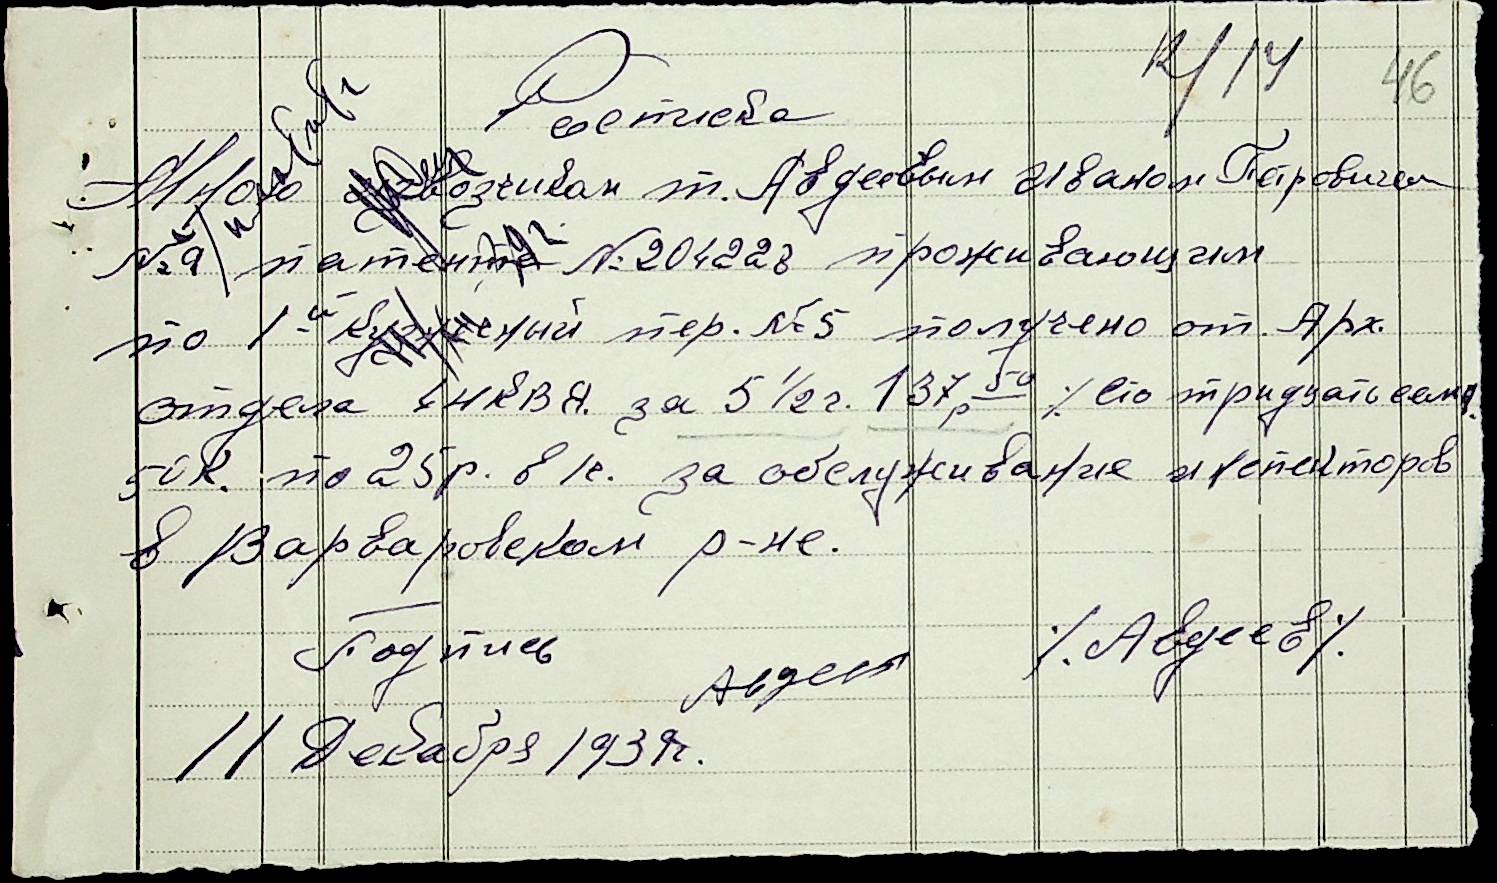 К/14 46
Расписка
Мною извозчиком т. Авдеевым Иваном Петровичем
№ 9 патент № 204223 проживающим
по 1-й Кузнечный пер. № 5 получено от Арх.
отдела УНКВД. за 5 1/2 г. 137р 50 /. Сто тридцать семь р.
50 к. по 25 р. в к. за обслуживание инспекторов
в Варваровском р-не.
Подпись Авдеев /. Авдеев /.
11 Декабря 1939 г.